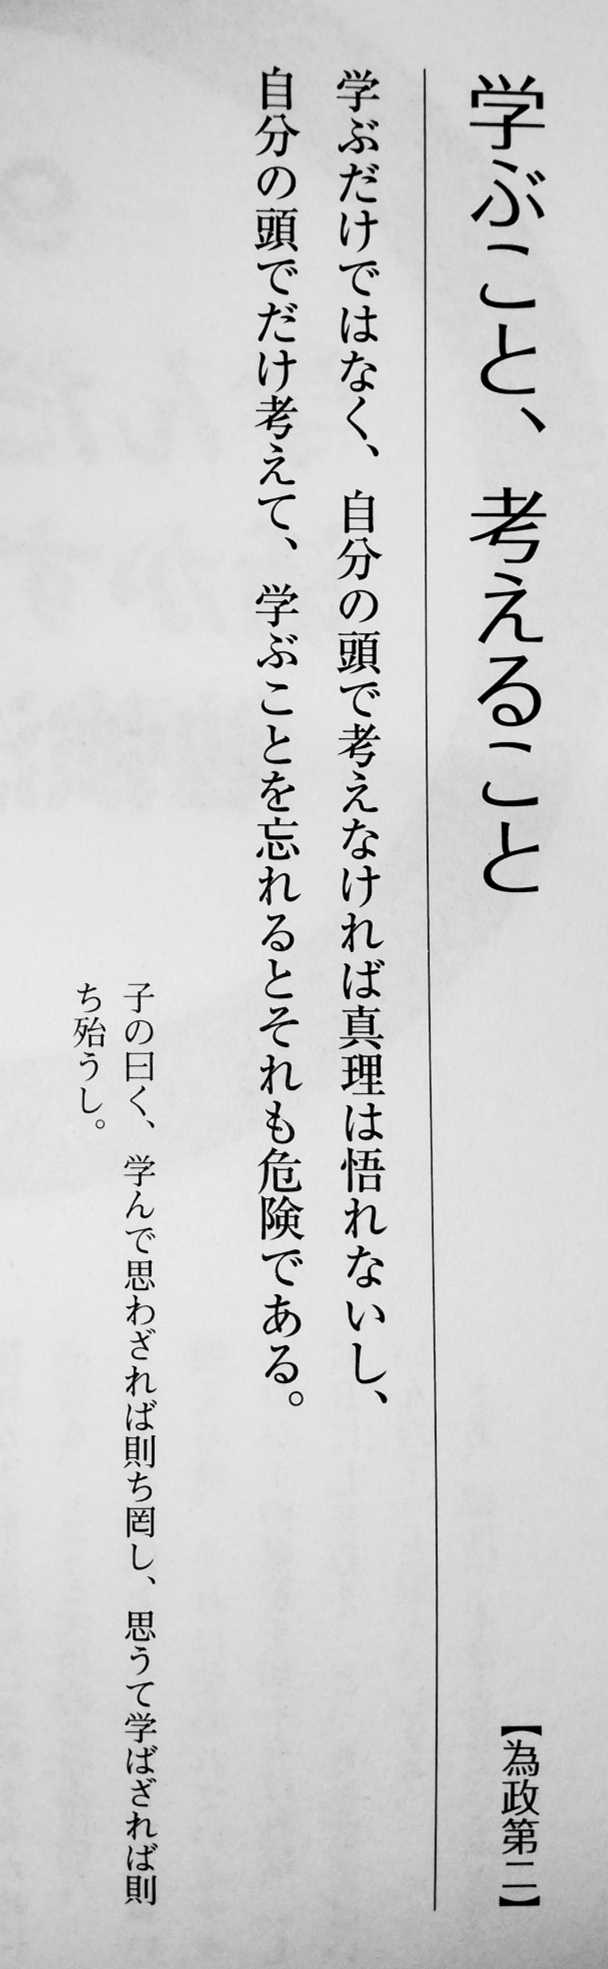 学ぶこと、考えること
【為政第二】
学ぶだけではなく、自分の頭で考えなければ真理は悟れないし、
自分の頭でだけ考えて、学ぶことを忘れるとそれも危険である。
子の曰く、学んで思わざれば則ち罔し、思うて学ばざれば則
ち殆うし。